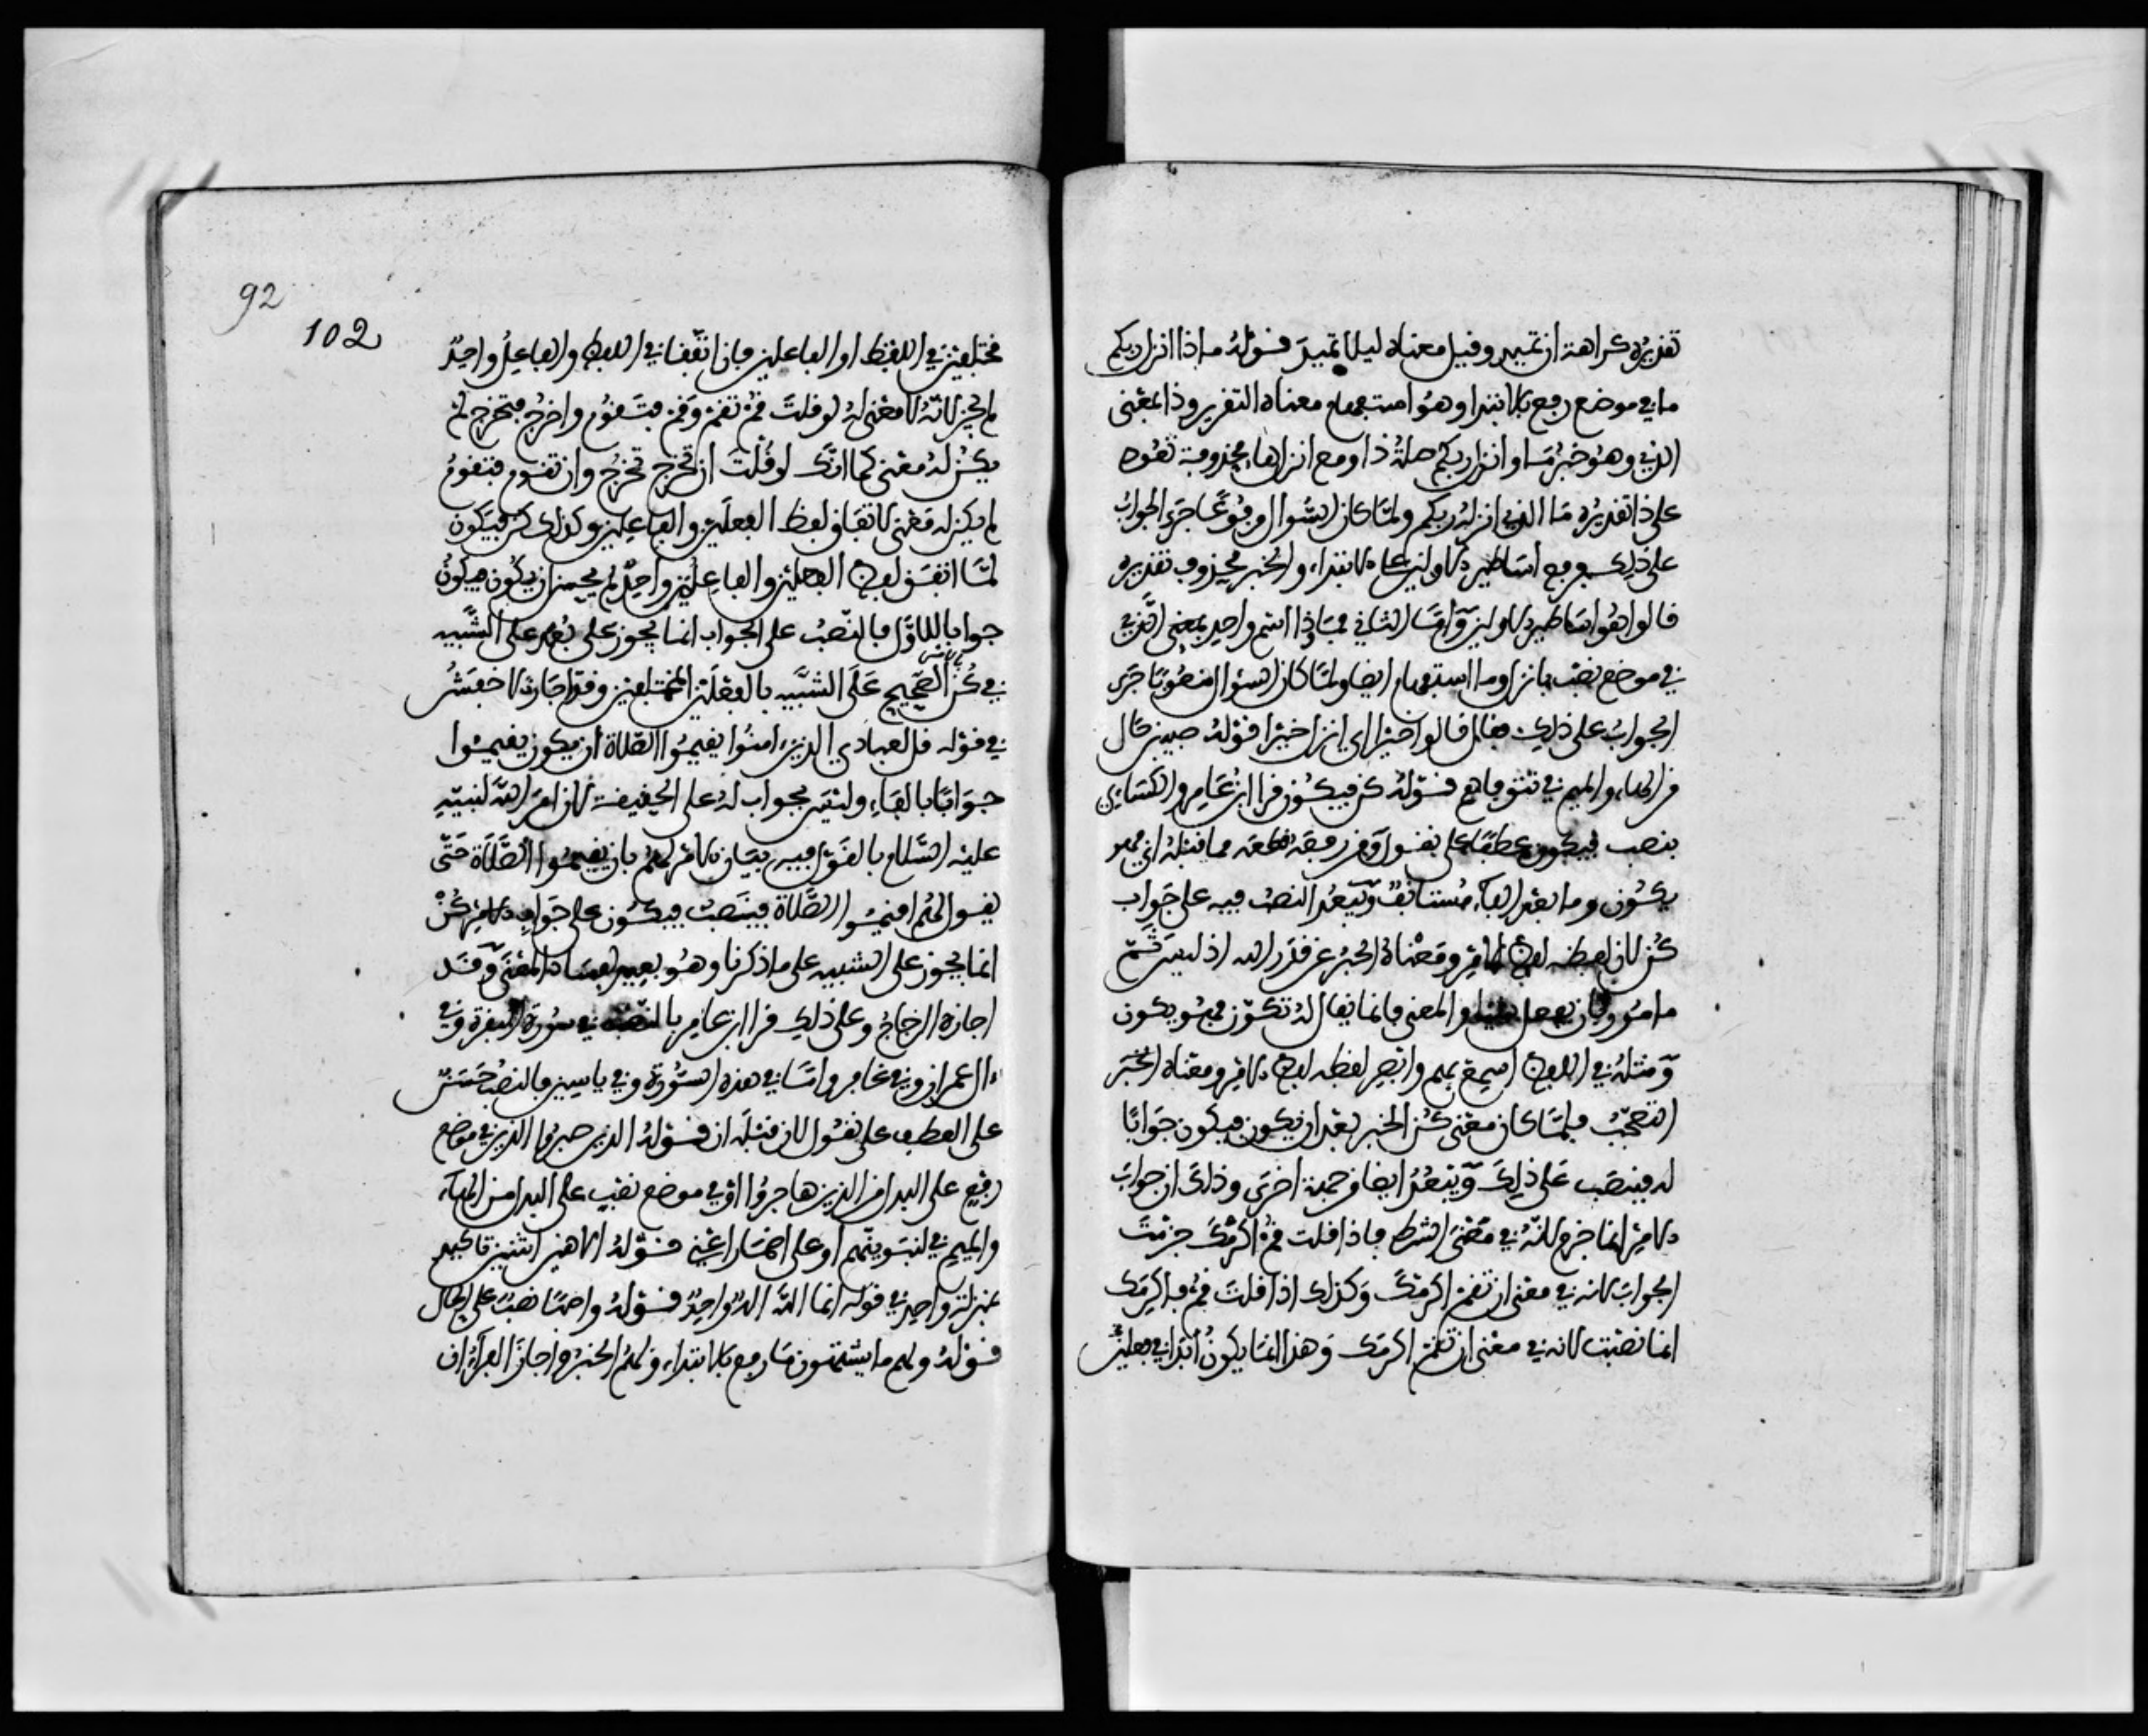 تقديره كراهة ان تميد وقيل معناه ليلا تميد قوله ماذا انزل ربكم
ما في موضع رفع بالابتدا وهو استفهام معناه التقرير وذا بمعنى
الذي وهو خبر ما وانزل ربكم صلة ذا ومع انزل ها محذوفة تعود
على ذا تقديره ما الذي انزله ربكم ولما كان السوال مرفوعا جرى الجواب
على ذلك فرفع اساطير الاولين على الابتداء والخبر محذوف تقديره
قالوا هو اساطير الاولين واما الثاني فماذا اسم واحد بمعنى الذي
في موضع نصب بانزل وما استفهام ايضا ولما كان السوال منصوبا جرى
الجواب على ذلك فقال قالوا خيرا اي انزل خيرا قوله طيبين حال
من الهاء والميم في تتوفاهم قوله كن فيكون قرا ابن عامر والكسائي
بنصب فيكون عطفا على نقول ومن رفعه قطعه مما قبله اي فهو
يكون وما بعد الفاء مستانف ويبعد النصب فيه على جواب
كن لان لفظه لفظ الامر ومعناه الخبر عن قدرة الله اذ ليس ثم
مامور بان يفعل شيئا والمعنى فانما يقال له تكون فهو يكون
ومثله في اللفظ اسمع بهم وابصر لفظه لفظ الامر ومعناه الخبر
التعجب فلما كان معنى كن الخبر بعد ان يكون فيكون جوابا
له فينصب على ذلك ويبعد ايضا من جهة اخرى وذلك ان جواب
الامر انما جزم لانه في معنى الشرط فاذا قلت قم اكرمك جزمت
الجواب لانه في معنى ان تقم اكرمك وكذلك اذا قلت قم فاكرمك
انما نصبت لانه في معنى ان تقم اكرمك وهذا انما يكون ابدا في فعلين
92
102
مختلفين في اللفظ او الفاعلين فان اتفقا في اللفظ والفاعل واحد
لم يجز لانه لا معنى له لو قلت قم تقم وقم فتقوم واخرج فتخرج لم
يكن له معنى كما انك لو قلت ان تخرج تخرج وان تقوم فتقوم
لم يكن له معنى لاتفاق لفظ الفعلين والفاعلين وكذلك كن فيكون
لما اتفق لفظ الفعلين والفاعلين واحد لم يحسن ان يكون فيكون
جوابا للاول فالنصب على الجواب انما يجوز على بعد على التشبيه
في كن الصحيح على التشبيه بالفعلين المختلفين وقد اجاز الاخفش
في قوله قل لعبادي الذين امنوا يقيموا الصلاة ان يكون يقيموا
جوابا بالفاء وليس بجواب له على الحقيقة لان امر الله لنبيه
عليه السلام بالقول فيه بيان الامر لهم بان يقيموا الصلاة حتى
يقول لهم اقيموا الصلاة فينصب فيكون على جواب الامر كن
انما يجوز على التشبيه على ما ذكرنا وهو بعيد لفساد المعنى وقد
اجازه الزجاج وعلى ذلك قرا ابن عامر بالنصب في سورة البقرة وفي
ءال عمران وفي غافر واما في هذه السورة وفي ياسين فالنصب حسن
على العطف على نقول لان قبله ان قوله الذين صبروا الذين في موضع
رفع على البدل من الذين هاجروا او في موضع نصب على البدل من الهاء
والميم في لنبوينهم او على اضمار اعني قوله الاهين اثنين تاكيد
بمنزلة واحد في قوله انما الله اله واحد قوله واصبا نصب على الحال
قوله ولهم ما يشتهون ما رفع بالابتداء ولهم الخبر واجاز الفراء ان